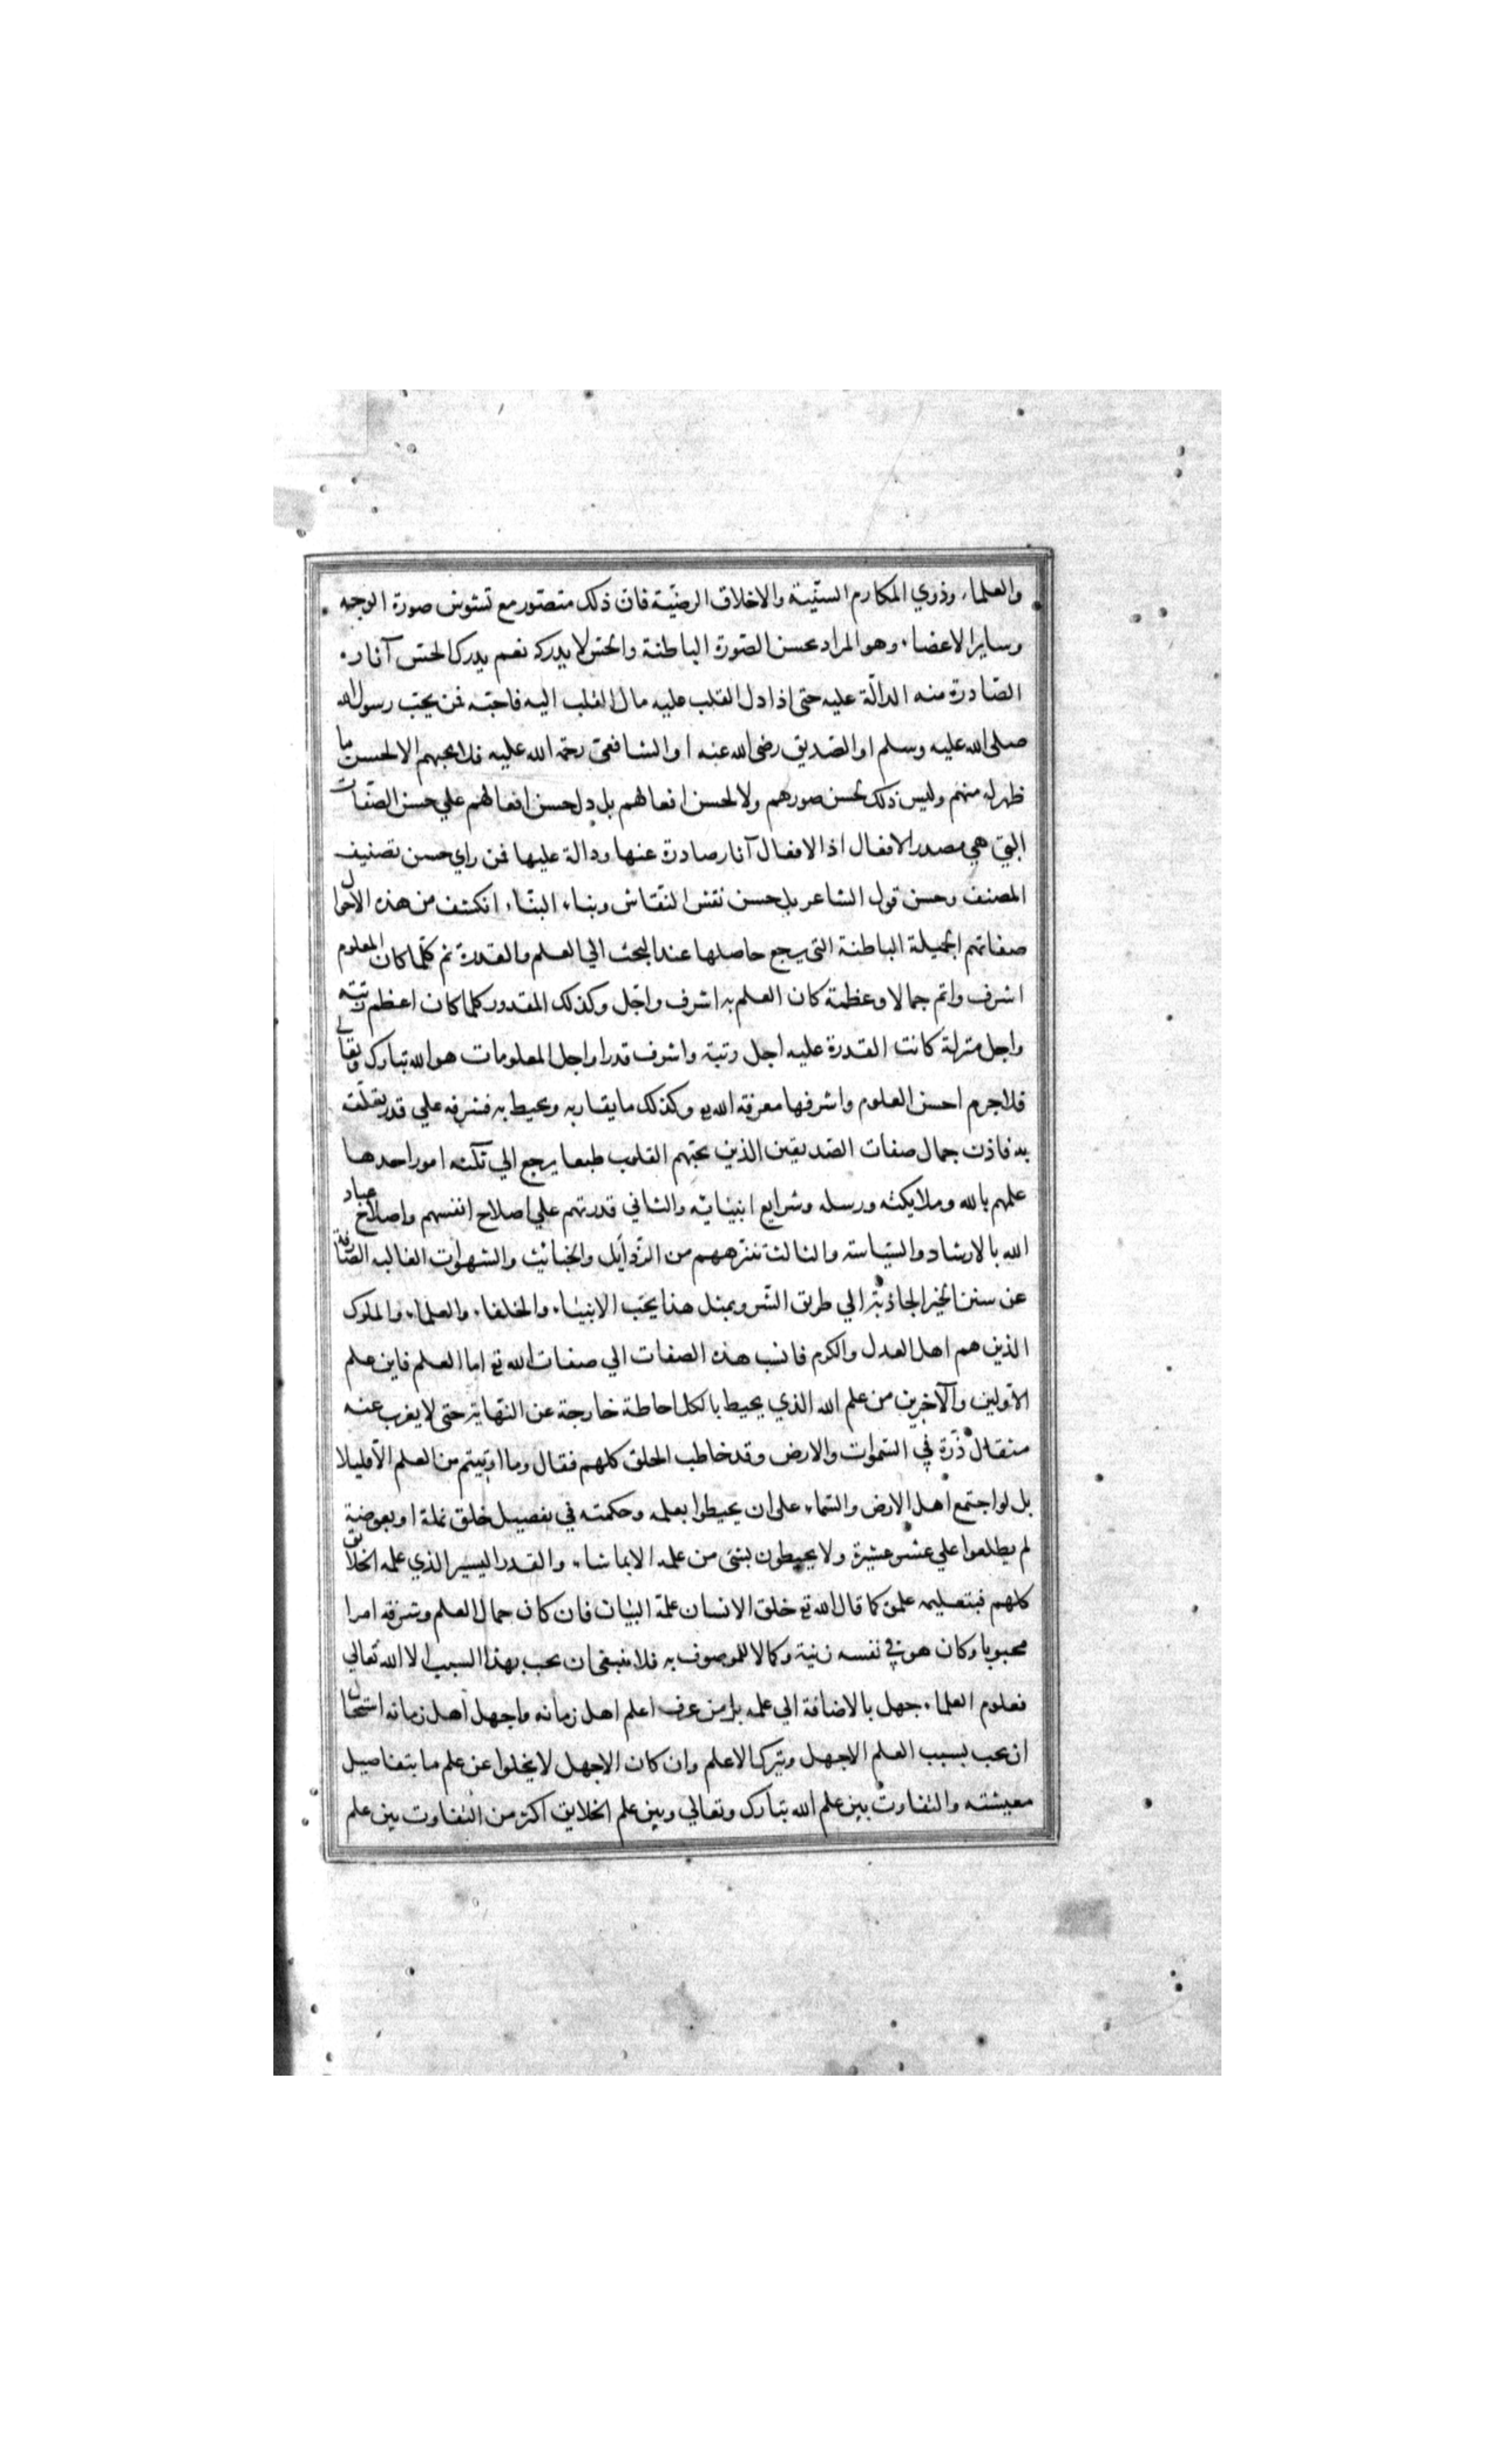 والعلماء وذوي المكارم السنّية والاخلاق الرضيّة فان ذلك متصوّر مع تشوش صورة الوجه
وساير الاعضاء وهو المراد بحسن الصّورة الباطنة والحسّ لا يدركه نعم يدرك الحسّ آثاره
الصّادرة منه الدالّة عليه حتى اذا دل القلب عليه مال القلب اليه فاحبّه فمن يحبّ رسول الله
صلى الله عليه وسلم او الصّديق رضى الله عنه او الشافعيّ رحمة الله عليه فلا يحبهم الا لحسن ما
ظهر له منهم وليس ذلك لحسن صورهم ولا لحسن افعالهم بل دل حسن افعالهم علي حسن الصّفات
التي هي مصدر الافعال اذ الافعال آثار صادرة عنها ودالة عليها فمن راي حسن تصنيف
المصنف وحسن قول الشاعر بل حسن نقش النقّاش وبناء البنّاء انكشف من هذه الاحوال
صفاتهم الجميلة الباطنة التى يرجع حاصلها عند البحث الي العلم والقدرة ثم كلّما كان المعلوم
اشرف واتم جمالا وعظمة كان العلم به اشرف واجّل وكذلك المقدور كلما كان اعظم رتبته
واجل منزلة كانت القدرة عليه اجل رتبة واشرف قدرا واجل المعلومات هو الله تبارك وتعالي
فلا جرم احسن العلوم واشرفها معرفة الله تع وكذلك ما يقاربه ويحيط به فشرفه علي قدر تعلّقه
به فاذن جمال صفات الصّديقين الذين تحبّهم القلوب طبعا يرجع الي ثلثه امور احدها
علمهم بالله وملايكته ورسله وشرايع انبيائه والثاني قدرتهم علي اصلاح انفسهم واصلاح عباد
الله بالارشاد والسّياسة والثالث تنزههم من الرّذايل والخبائث والشهوات الغالبه الصّارفة
عن سنن الخير الجاذبة الي طريق الشّر وبمثل هذا يحّب الانبياء والخلفاء والعلماء والملوك
الذين هم اهل العدل والكرم فانسب هذه الصفات الي صفات الله تع اما العلم فاين علم
الاوّلين والآخرين من علم الله الذي يحيط بالكل احاطة خارجة عن النّهاية حتى لا يعزب عنه
مثقال ذرّة في السّموات والارض وقد خاطب الخلق كلهم فقال وما اوتيتم من العلم الّا قليلا
بل لو اجتمع اهل الارض والسّماء على ان يحيطوا بعلمه وحكمته في تفصيل خلق نملة او بعوضة
لم يطلعوا علي عشر عشيرة ولا يحيطون بشئ من علمه الا بما شاء والقدر اليسير الذي علمه الخلايق
كلهم فبتعليمه علموه كما قال الله تع خلق الانسان علمّه البيان فان كان جمال العلم وشرفه امرا
محبوبا وكان هو في نفسه زينة وكمالا للموصوف به فلا ينبغى ان يحب بهذا السبب الا الله تعالي
فعلوم العلماء جهل بالاضافة الي علمه بل من عرف اعلم اهل زمانه واجهل اهل زمانه استحال
ان يحب بسبب العلم الاجهل ويترك الاعلم وان كان الاجهل لا يخلوا عن علم ما بتفاصيل
معيشته والتفاوت بين علم الله تبارك وتعالي وبين علم الخلايق اكثر من التفاوت بين علم